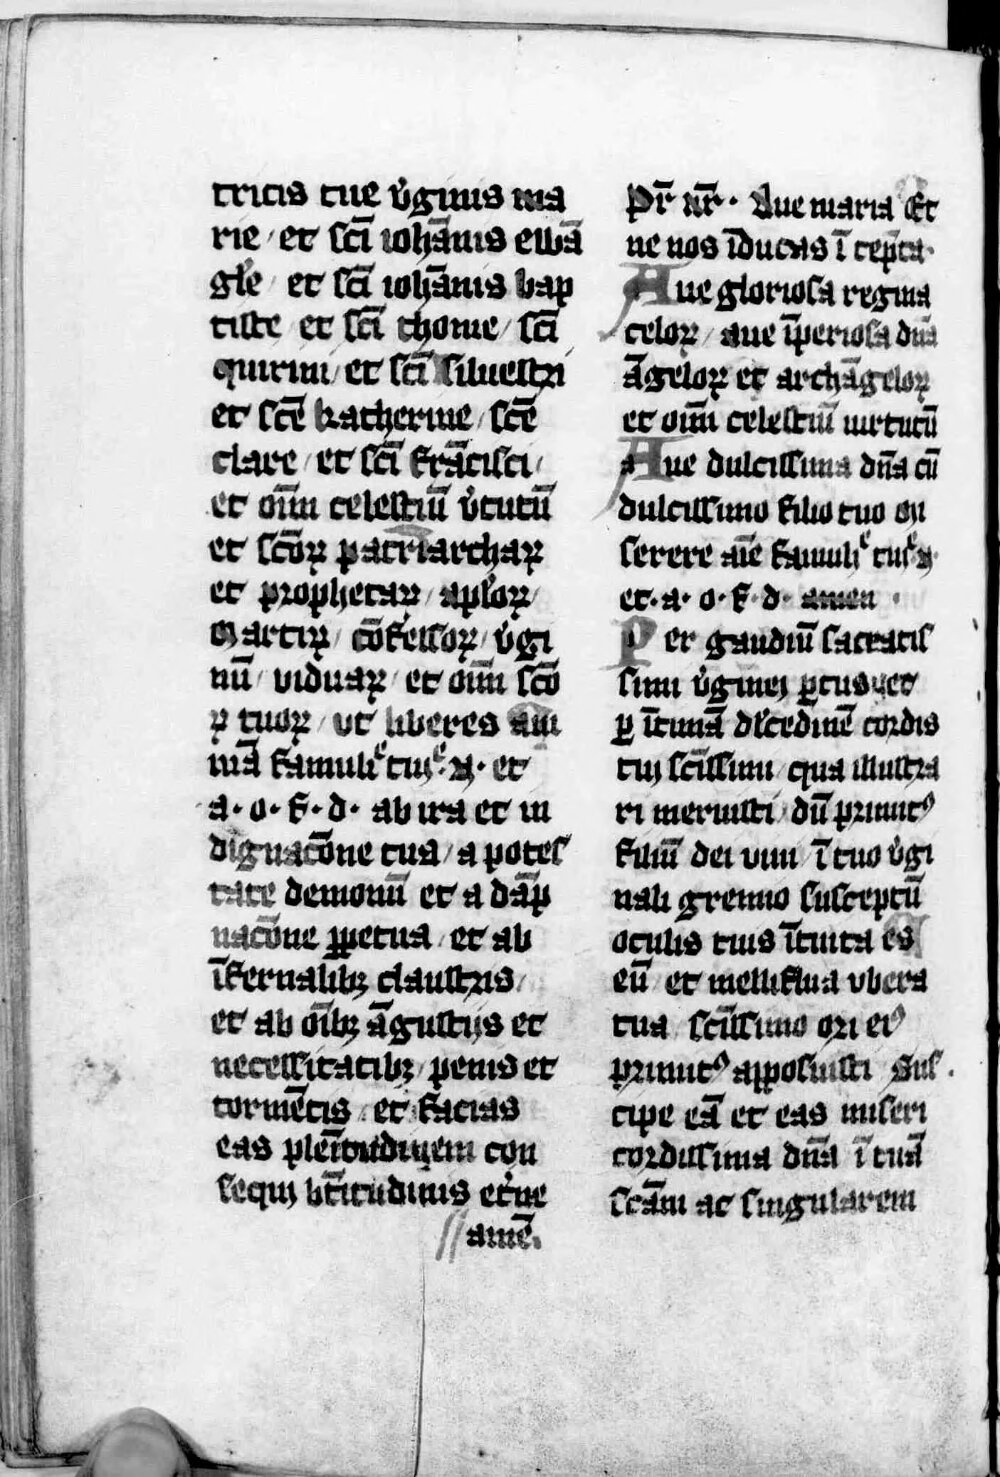 tricis tue v̓ginis ma
rie / et sc̄i ioh̄anis ewā
gl̓e / et sc̄i ioh̄anis bap
tiste / et sc̄i thome / sc̄i
quirini / et sc̄i siluestri
et sc̄e katherine / sc̄e
clare / et sc̄i frācisci /
et om̄i celestiū v̓tutū
et sc̄oꝝ patriarchaꝝ
et prophetaꝝ / apl̓oꝝ /
Martiꝝ / cōfessoꝝ / v̓gi
nū / viduaꝝ / et om̄i sc̄o
ꝝ tuoꝝ / ut liberes ani
mā famuli͑ tui͑ · N · et
a · o · f · d · ab ira et in
dignac̄one tua / a potes
tate demonū et a dāp
nac̄one ꝑpetua / et ab
īfernalibꝫ claustris /
et ab oībꝫ āgustijs et
necessitatibꝫ / penis et
tormētis / et facias
eas plenitudinem con
sequi bt̄itudinis et̓ne
// amē.
Pr̄ nr̄ · Aue maria Et
ne nos īducas ī tept̄a ·
Aue gloriosa regina
celoꝝ / aue īperiosa dn̄a
āgeloꝝ et archāgeloꝝ
et om̄i celestiū uirtutū
Aue dulcissima dn̄a cū
dulcissimo filio tuo mi
serere aīe famuli͑ tui͑ N
et · a · o · f · d · amen ·
Per gaudiū sacratis
simi v̓ginei ꝑtus / et
ꝑ ītimā dl̓cedinē cordis
tui sc̄issimi / qua illustra
ri meruisti / dū primitꝰ
filiū dei viui / ī tuo v̓gi
nali gremio susceptū
oculis tuis ītuita es
eū / et melliflua vbera
tua / sc̄issimo ori eiꝰ
primitꝰ apposuisti Sus
cipe eā et eas miseri
cordissima dn̄a ī tuā
sc̄am ac singularem